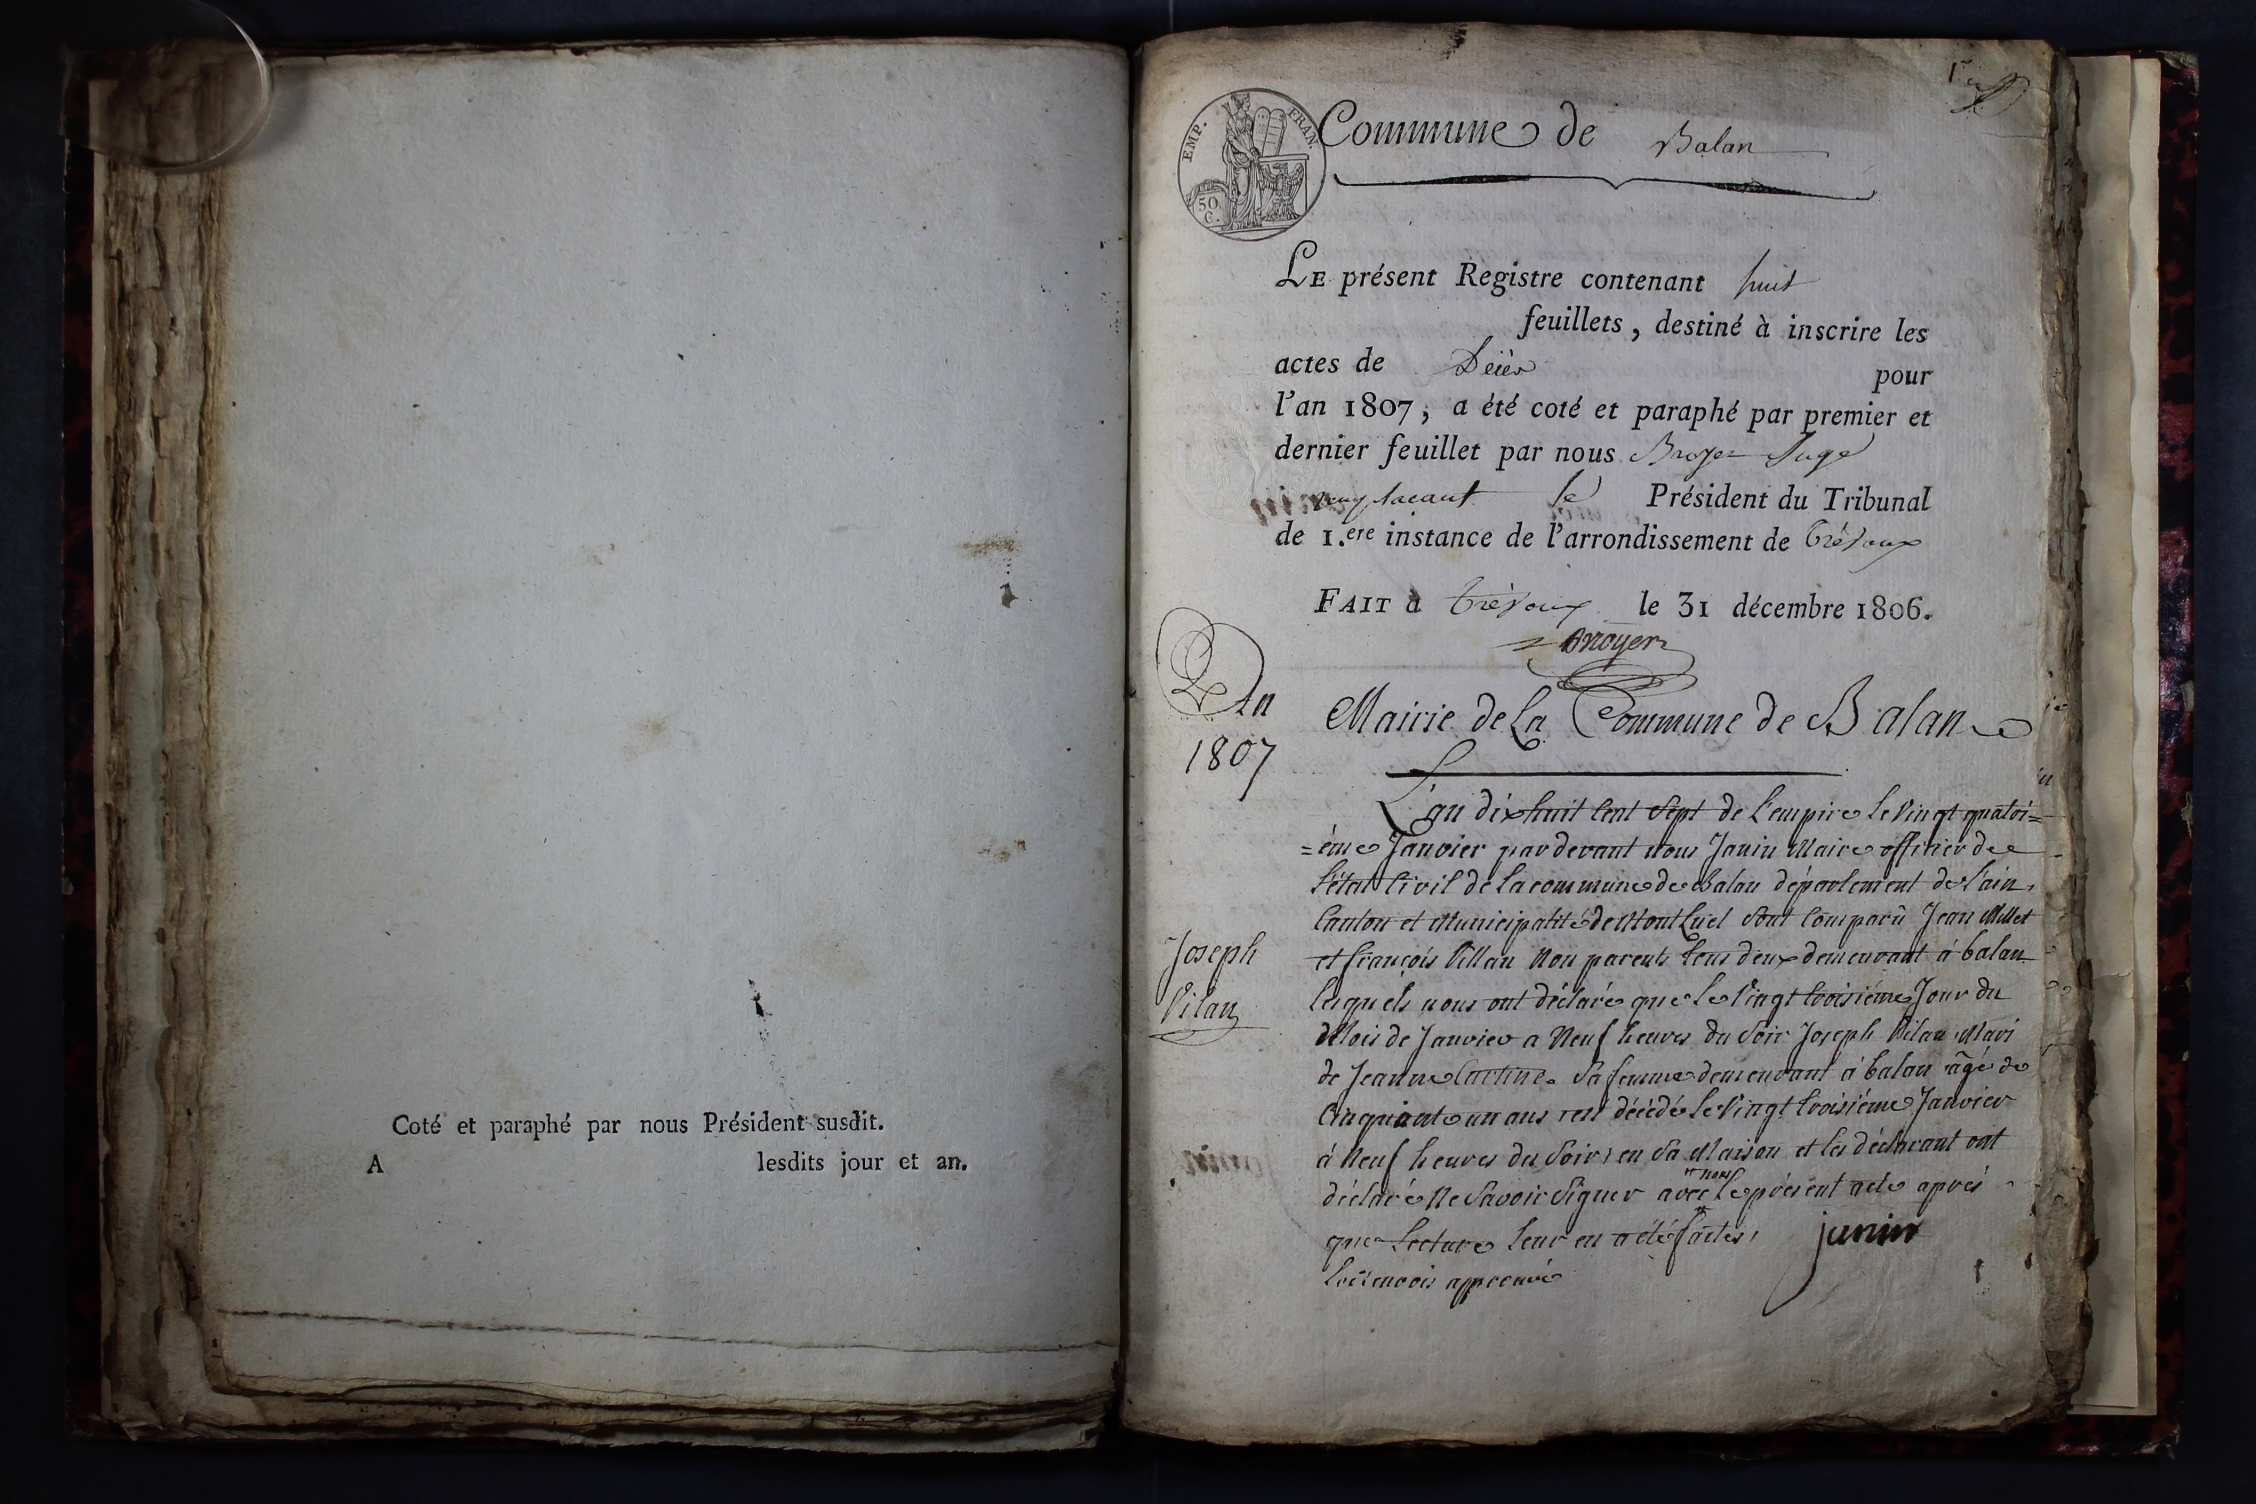 Coté et paraphé par nous Président susdit.
A lesdits jour et an.
1er
EMP. FRAN.
50 C.
Commune de Balan
LE présent Registre contenant huit
feuillets, destiné à inscrire les
actes de Décès pour
l'an 1807, a été coté et paraphé par premier et
dernier feuillet par nous Broyer Juge
remplacant le Président du Tribunal
de 1.ere instance de l'arrondissement de Trévoux
FAIT à Trévoux le 31 décembre 1806.
Broyer
An
1807
Mairie de La Commune de Balan
L'an dixhuit Cent Sept de L'empire le Vingt quatri=
=éme Janvier pardevant nous Janin Maire officier de
l'état Civil de la commune de Balan département de l'ain,
Canton et Municipalité de MontLuel Sont Comparû Jean Millet
et francois Villan Non parents tous deux demeurant à balan
Joseph
Vilan
lesquels nous ont déclaré que le Vingt troisiéme Jour du
Mois de Janvier a Neuf heures du Soir Joseph Vilan Mari
de Jeanne Sa femme demeurant à balan agé de
Cinquante un ans est décédé le Vingt troisiéme Janvier
à Neuf heures du Soir, en Sa Maison et les déclarant ont
déclaré Ne Savoir Signer avec nous le présent acte aprés
que Lecture leur en a été faites, janin
approuvé